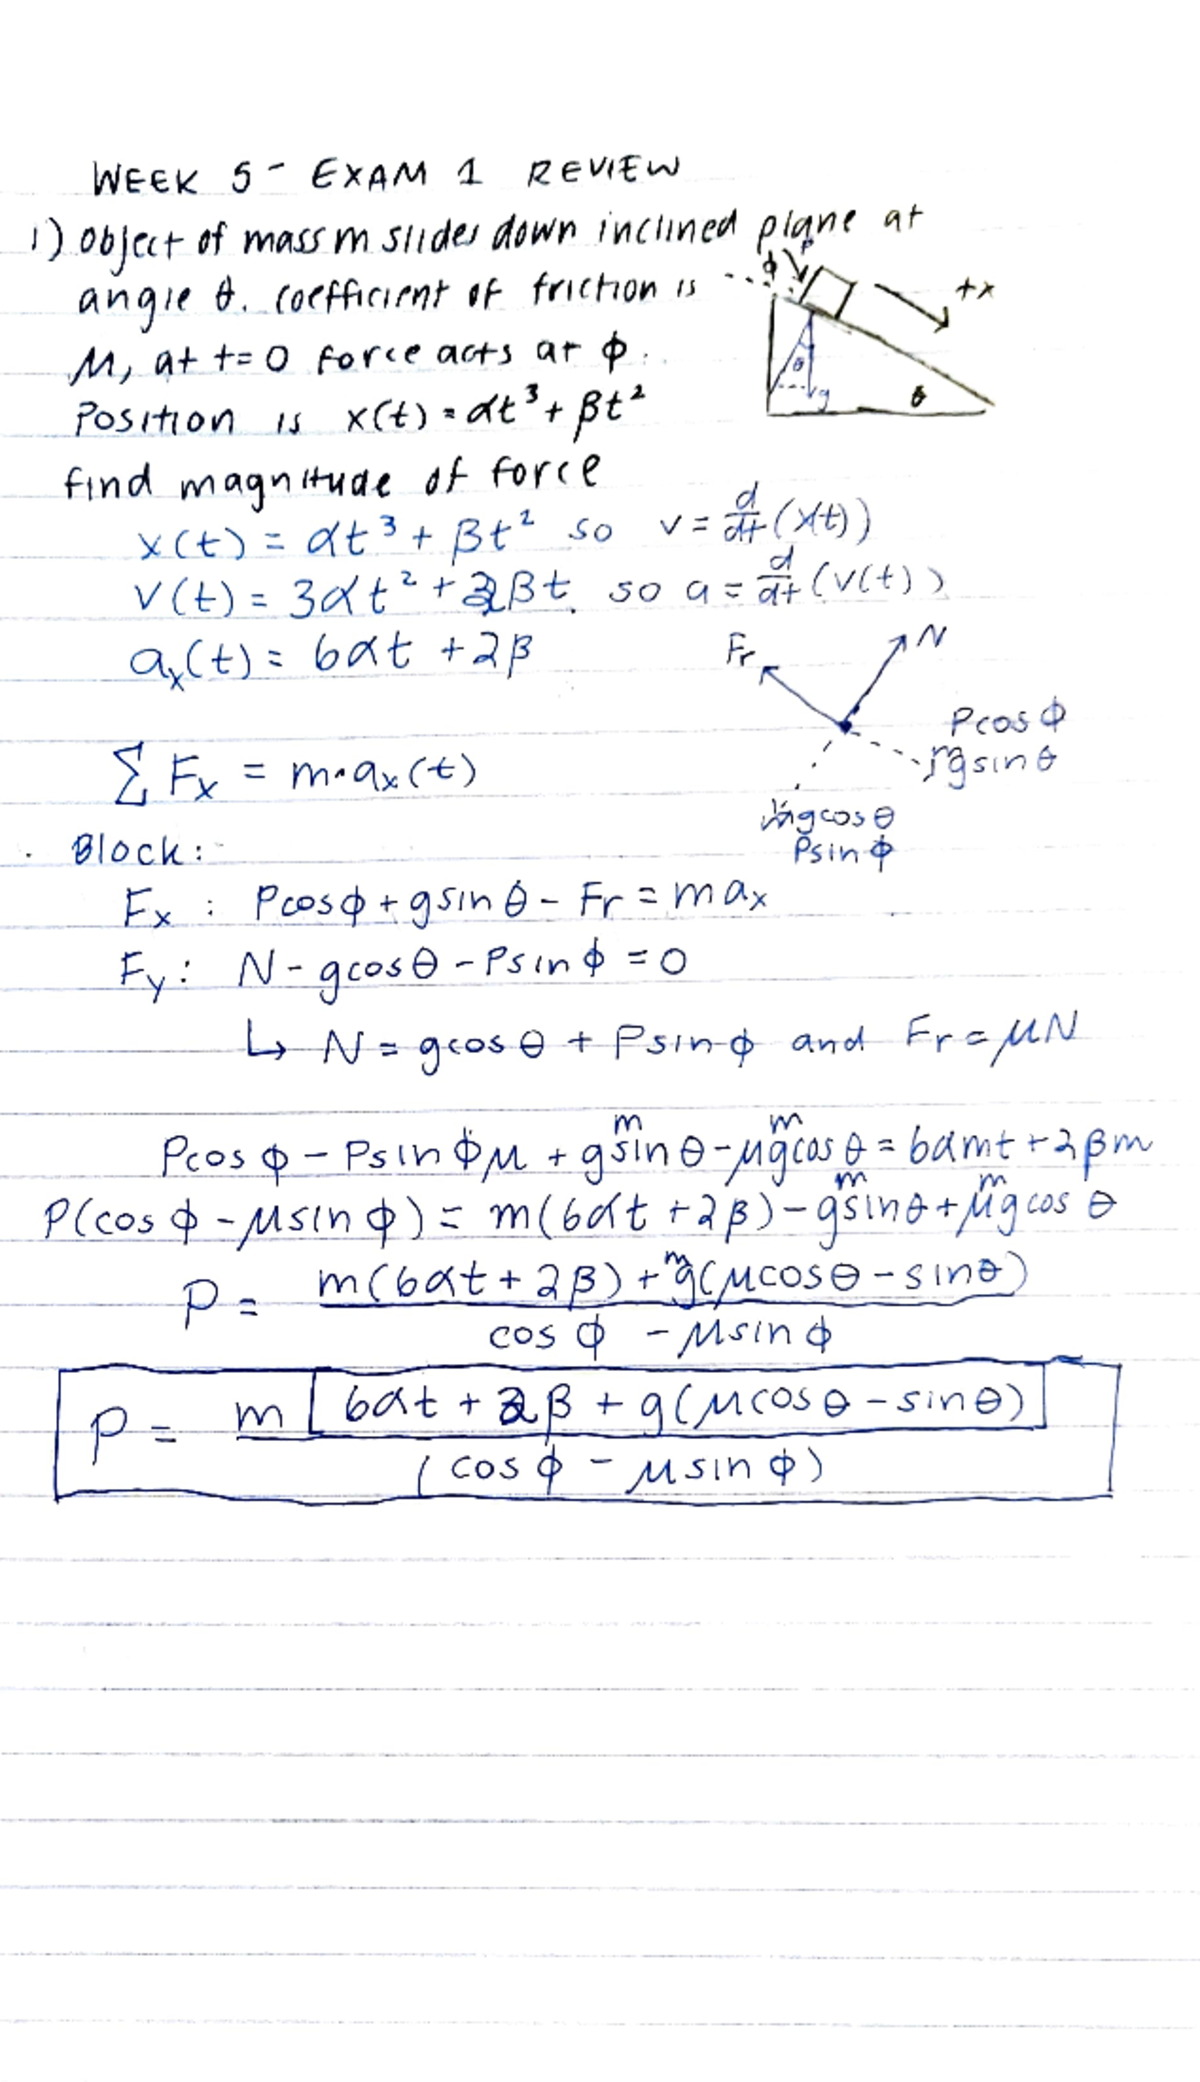 WEEK 5 - EXAM 1 REVIEW
1) object of mass m slides down inclined plane at
angle θ. coefficient of friction is
μ, at t=0 force acts at ϕ.
Position is x(t) = αt³ + βt²
find magnitude of force
ϕ P
+x
θ
g
θ
x(t) = αt³ + βt² so v = d/dt (x(t))
v(t) = 3αt² + 2βt. so a = d/dt (v(t))
aₓ(t) = 6αt + 2β
Fr
N
Pcos ϕ
mgsin θ
mgcos θ
Psin ϕ
Σ Fₓ = m·aₓ(t)
Block:
Fₓ : Pcosϕ + gsin θ - Fr = maₓ
Fy : N - gcosθ - Psin ϕ = 0
↳ N = gcosθ + Psinϕ and Fr = μN
Pcos ϕ - Psin ϕμ + gmsin θ - μgmcos θ = 6αmt + 2βm
P(cos ϕ - μsin ϕ) = m(6αt + 2β) - gmsinθ + μmgcos θ
P = m(6αt + 2β) + mg(μcosθ - sinθ)
cos ϕ - μsin ϕ
P = m[6αt + 2β + g(μcosθ - sinθ)]
(cos ϕ - μsin ϕ)